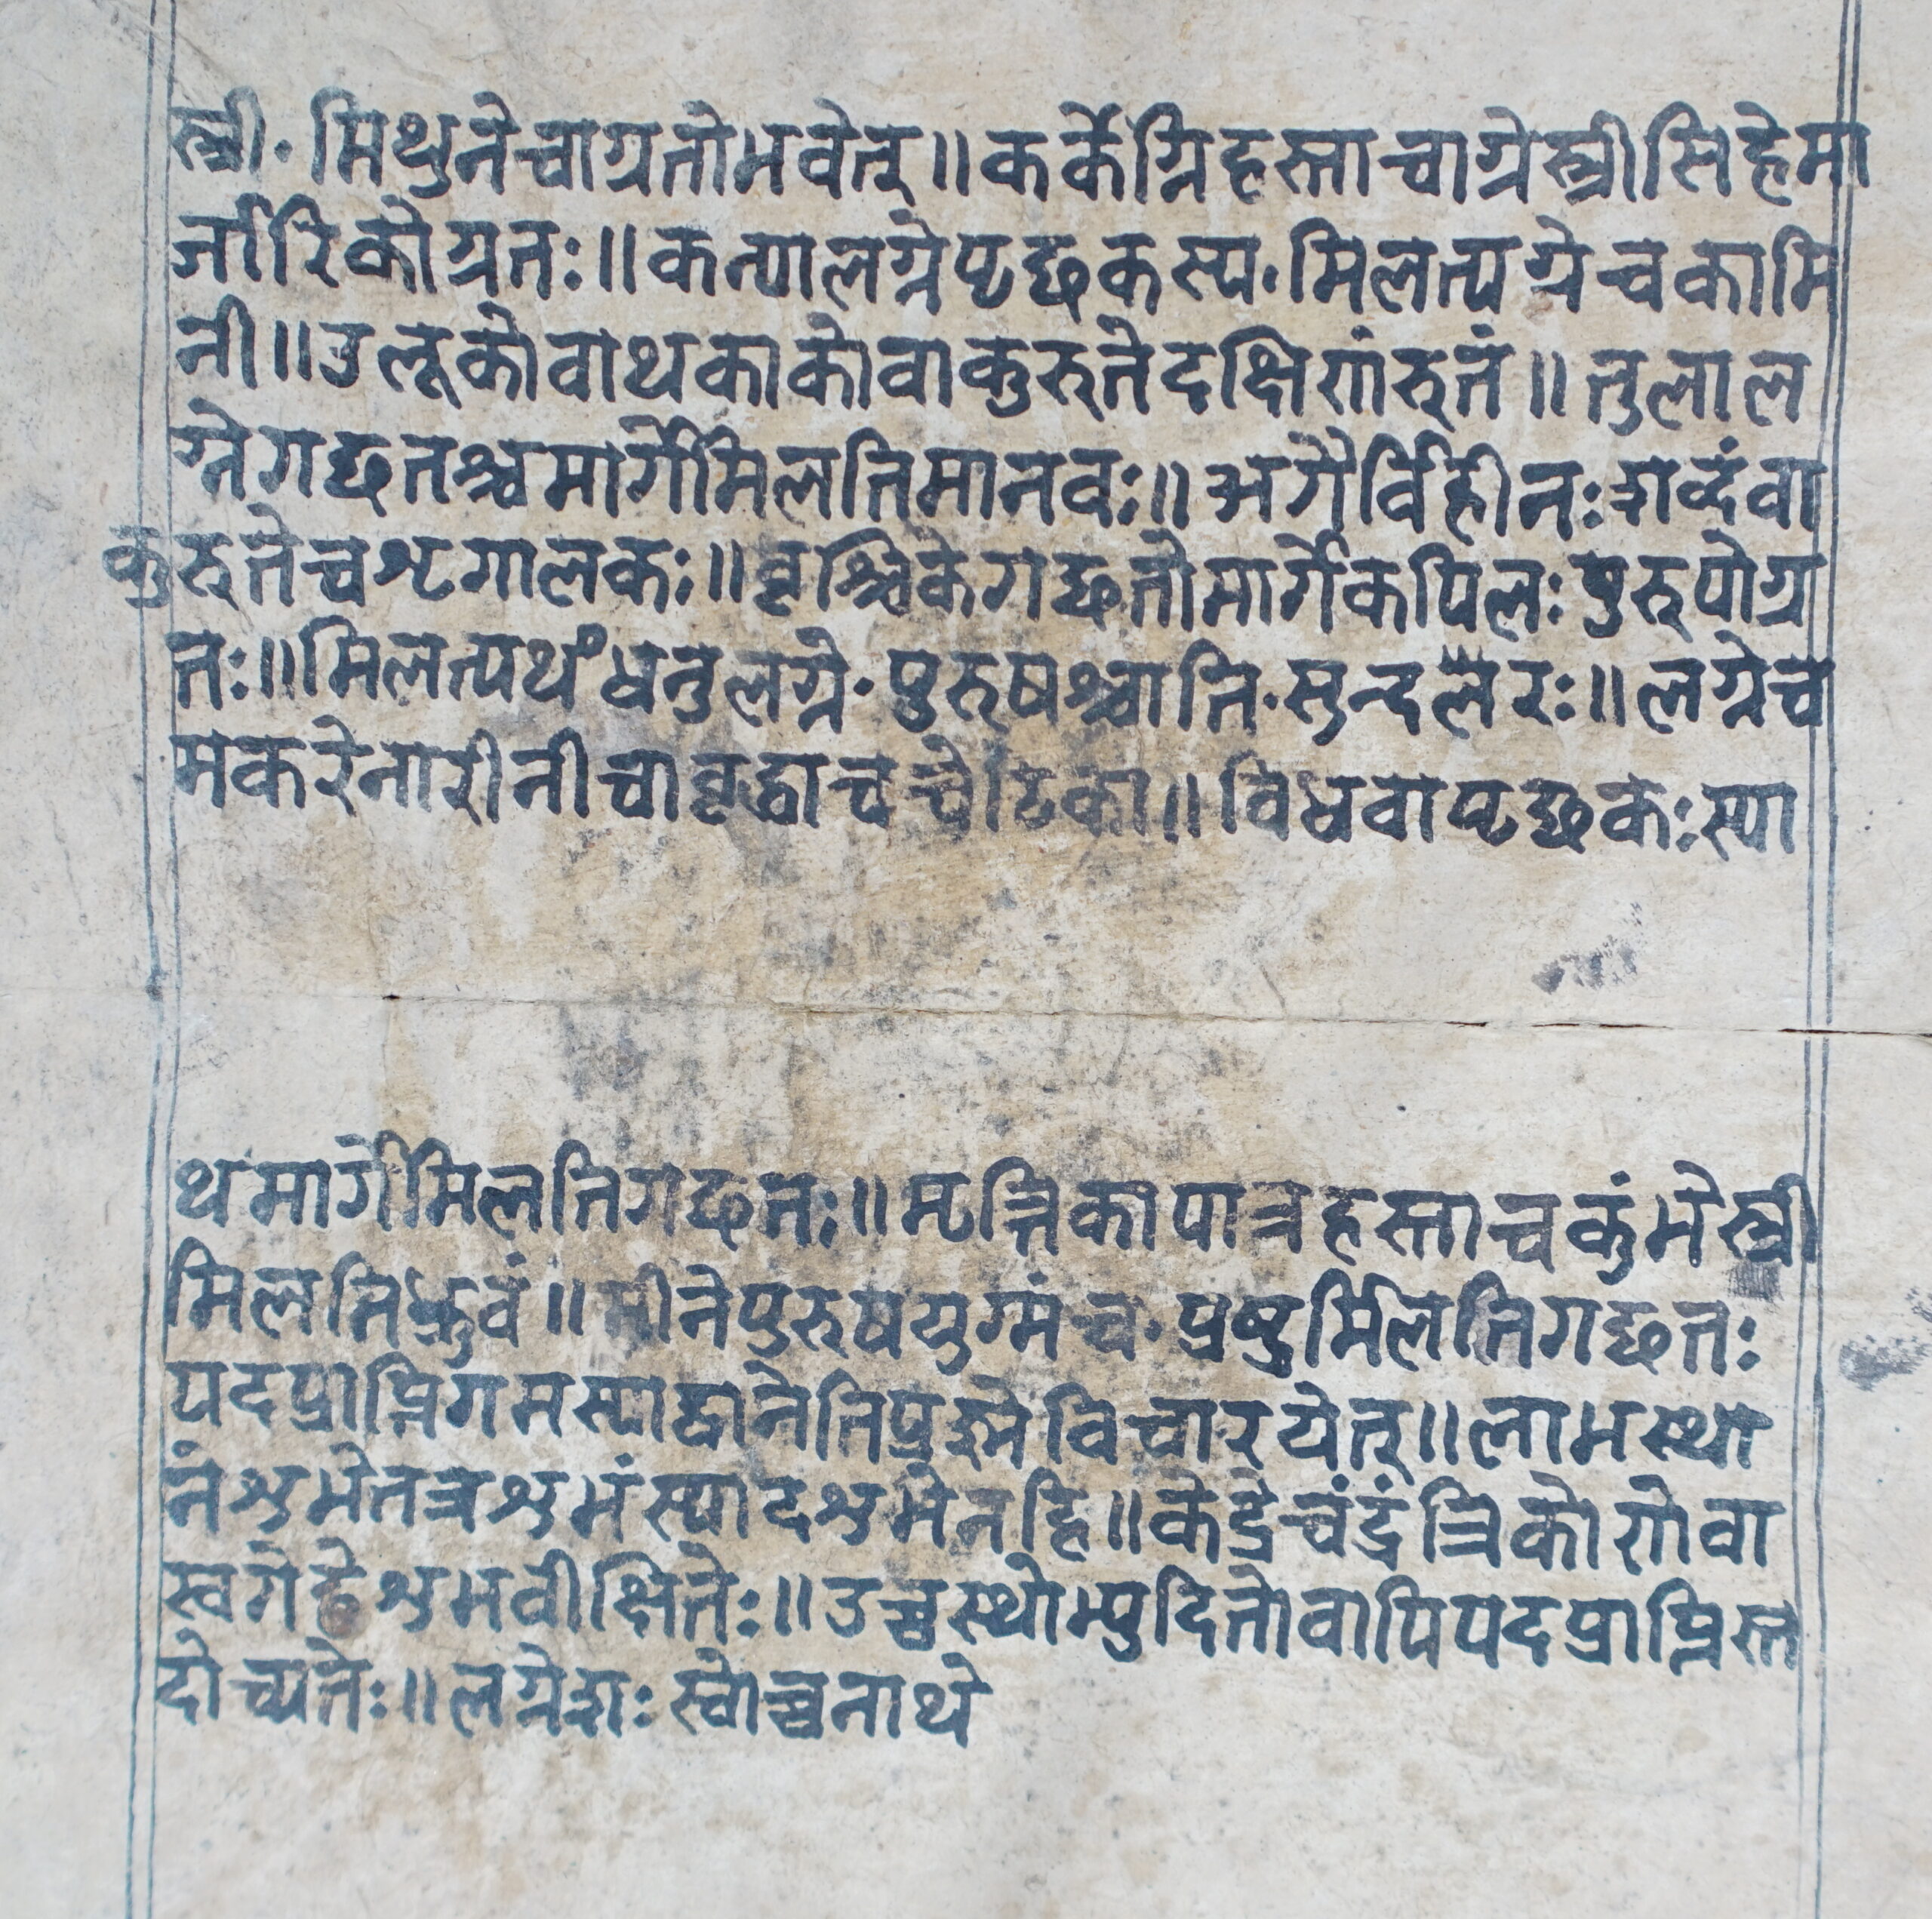 स्त्री · मिथुनेचाग्रतोभवेत्॥कर्केग्निहस्ताचाग्रेस्त्रीसिहेमा
र्जारिकोग्रतः॥कन्यालग्नेपृछकस्य·मिलत्यग्रेचकामि
नी॥उलूकोवाथकाकोवाकुरुतेदक्षिणांरुतं॥तुलाल
ग्नेगछतश्चमार्गेमिलतिमानवः॥अगैर्विहीनःशब्दंवा
कुरुतेचशृगालकः॥वृश्चिकेगछतोमार्गेकपिलःपुरुषोग्र
तः॥मिलत्यथंधनुलग्ने·पुरुषश्चाति·सुन्दलरः॥लग्नेच
मकरेनारीनीचावृद्धाचचेटिका॥विधवापृछकःस्या
थमार्गेमिलतिगछतः॥मृत्तिकापात्रहस्ताचकुंभेस्त्री
मिलतिध्रुवं॥मीनेपुरुषयुग्मंच·प्रष्टुर्मिलतिगछतः
पदप्राप्तिगमस्याद्वानेतिप्रश्नेविचारयेत्॥लाभस्था
नंशुभेतत्रशुभंस्यादशुभेनहि॥केद्रेचंद्रंत्रिकोणेवा
स्वगेहेशुभवीक्षितेः॥उच्चस्थोभ्युदितोवापिपदप्राप्तिस्त
दोच्यतेः॥लग्नेशःस्वोच्चनाथे